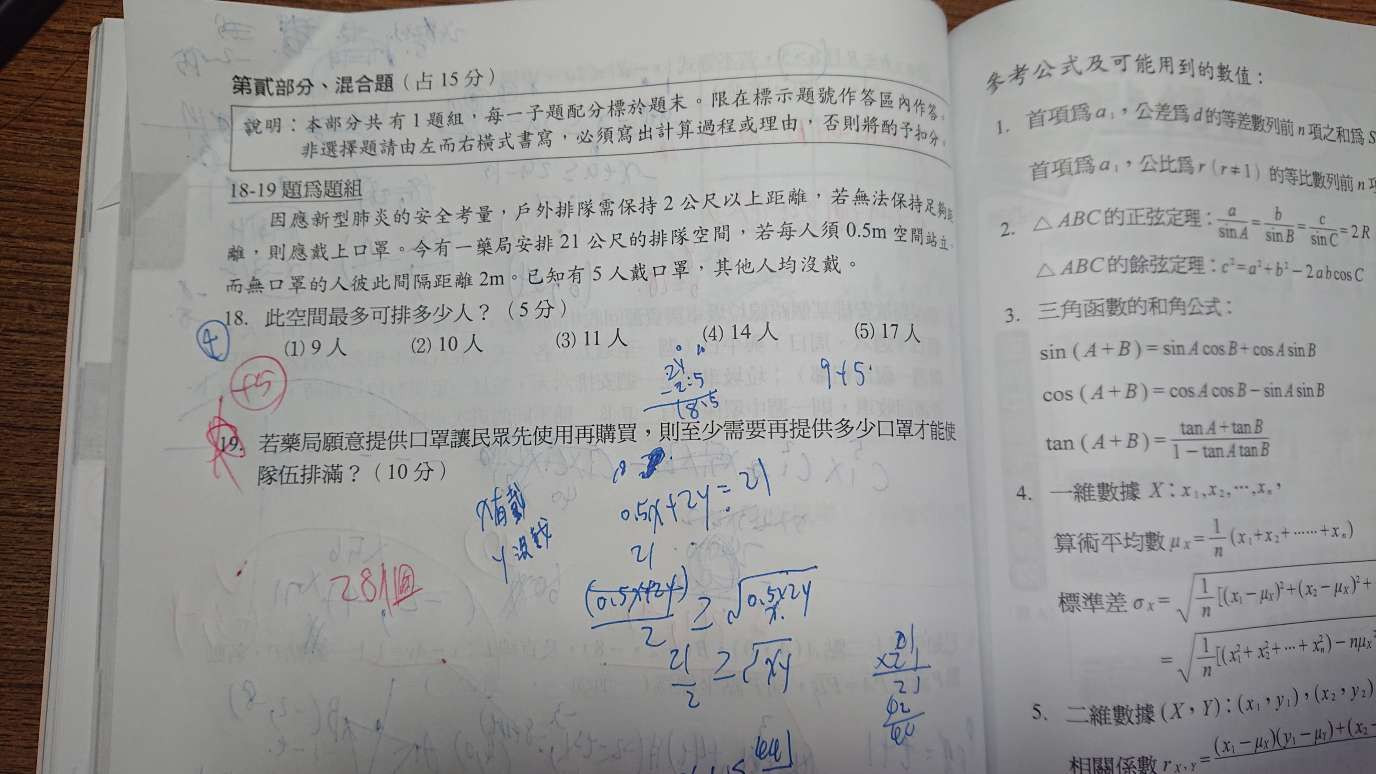 第貳部分、混合題(占15分)
說明:本部分共有1題組,每一子題配分標於題末。限在標示題號作答區內作答。
非選擇題請由左而右橫式書寫,必須寫出計算過程或理由,否則將酌予扣分。
18-19題為題組
因應新型肺炎的安全考量,戶外排隊需保持2公尺以上距離,若無法保持足夠
離,則應戴上口罩。今有一藥局安排21公尺的排隊空間,若每人須0.5m空間站立,
而無口罩的人彼此間隔距離2m。已知有5人戴口罩,其他人均沒戴。
18. 此空間最多可排多少人?(5分)
(1) 9人 (2) 10人 (3) 11人 (4) 14人 (5) 17人
4
+5
21
-2.5
18.5
9+5
19. 若藥局願意提供口罩讓民眾先使用再購買,則至少需要再提供多少口罩才能使
隊伍排滿?(10分)
x有戴
y沒戴
0.5x+2y=21
21
28個
(0.5x+2y)
2
≥ √0.5x2y
21
2
≥ √xy
21
×21
21
42
44
441
參考公式及可能用到的數值:
1. 首項為a₁,公差為d的等差數列前n項之和為S
首項為a₁,公比為r(r≠1)的等比數列前n項
2. △ABC的正弦定理:a/sinA=b/sinB=c/sinC=2R
△ABC的餘弦定理:c²=a²+b²-2abcosC
3. 三角函數的和角公式:
sin(A+B)=sinAcosB+cosAsinB
cos(A+B)=cosAcosB-sinAsinB
tan(A+B)=tanA+tanB/1-tanAtanB
4. 一維數據X:x₁,x₂,…,xₙ,
算術平均數μX=1/n(x₁+x₂+……+xₙ)
標準差σX=√1/n[(x₁-μX)²+(x₂-μX)²+
=√1/n[(x₁²+x₂²+…+xₙ²)-nμX²
5. 二維數據(X,Y):(x₁,y₁),(x₂,y₂)
相關係數rX,Y=(x₁-μX)(y₁-μY)+(x₂-